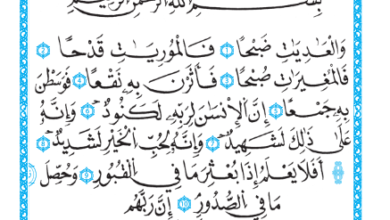 بِسْمِ اللهِ الرَّحْمٰنِ الرَّحِيْمِ
وَالْعٰدِيٰتِ ضَبْحًا ١ فَالْمُوْرِيٰتِ قَدْحًا ٢
فَالْمُغِيْرٰتِ صُبْحًا ٣ فَاَثَرْنَ بِهٖ نَقْعًا ٤ فَوَسَطْنَ
بِهٖ جَمْعًا ٥ اِنَّ الْاِنْسَانَ لِرَبِّهٖ لَكَنُوْدٌ ٦ وَاِنَّهٗ
عَلٰى ذٰلِكَ لَشَهِيْدٌ ٧ وَاِنَّهٗ لِحُبِّ الْخَيْرِ لَشَدِيْدٌ ٨
اَفَلَا يَعْلَمُ اِذَا بُعْثِرَ مَا فِى الْقُبُوْرِ ٩ وَحُصِّلَ
مَا فِى الصُّدُوْرِ ١٠ اِنَّ رَبَّهُمْ